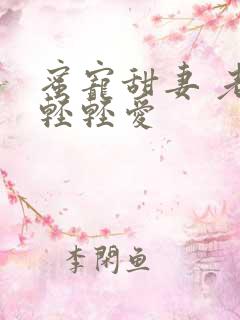 蜜寵甜妻 老
輕輕愛
李閑鱼